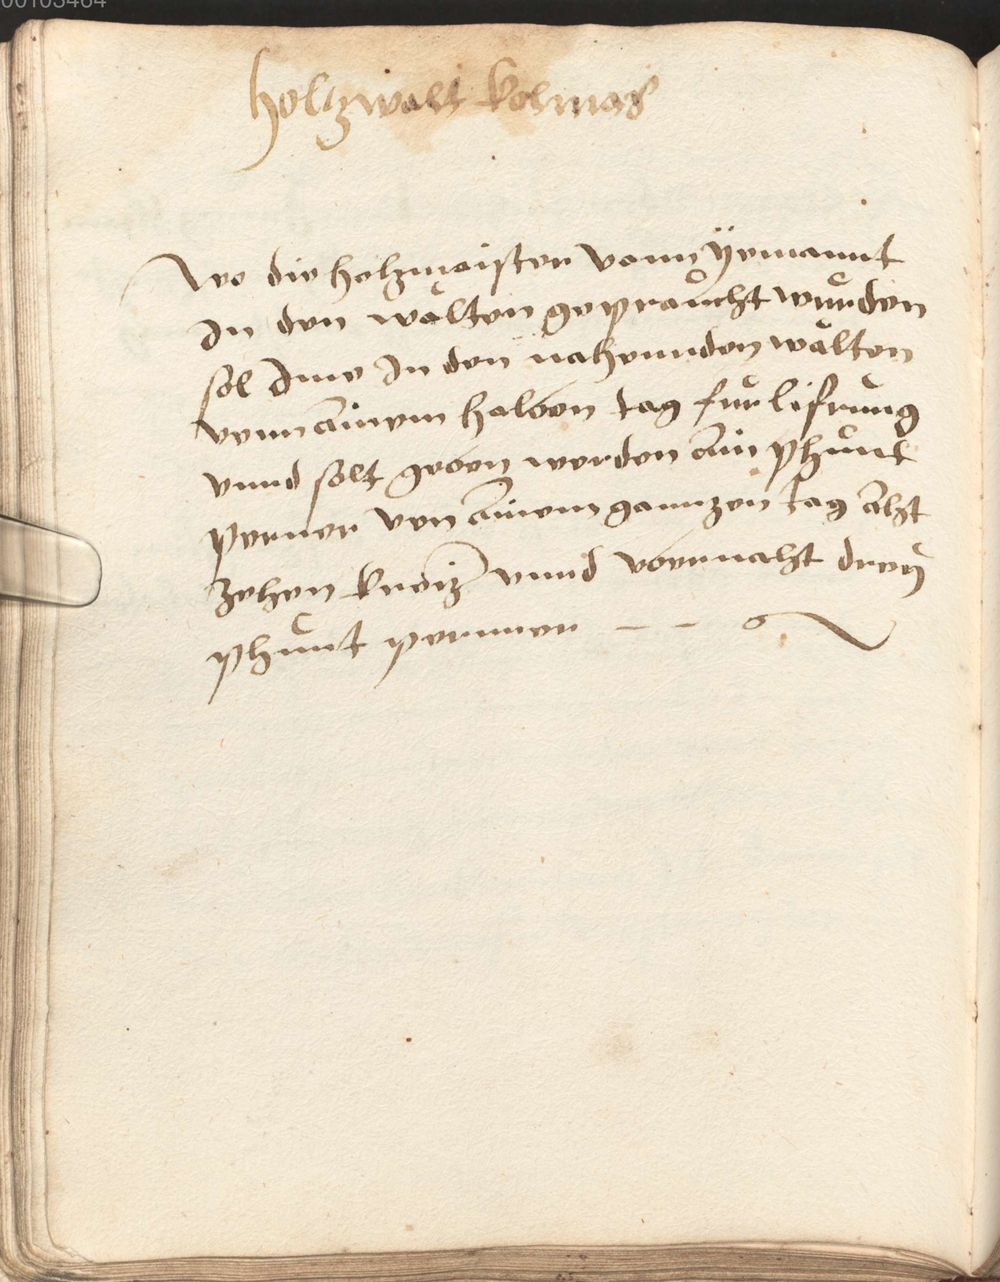 00103464
holtzwalt kolmas
Wo die holzmaister vonn yemannt
In den wälten gepraucht wurden
sol Ime In den nahennden wälten
vonn ainem halben tag fur lifrung
vnnd solt geben werden ain phunt
perner von ainem gannzen tag acht
zehen kreiz vnnd vbernacht drey
phunt pernner